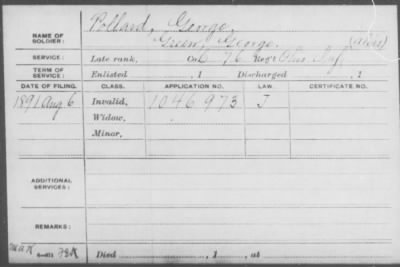 Pollard, George,
NAME OF SOLDIER: Green, George. (alias)
SERVICE: Late rank, Co. 76 Reg't Inf
TERM OF SERVICE: Enlisted , 1 Discharged , 1
DATE OF FILING. CLASS. APPLICATION NO. LAW. CERTIFICATE NO.
1891 Aug 6 Invalid, 1046973 J
Widow,
Minor,
ADDITIONAL SERVICES:
REMARKS:
Died , 1 , at